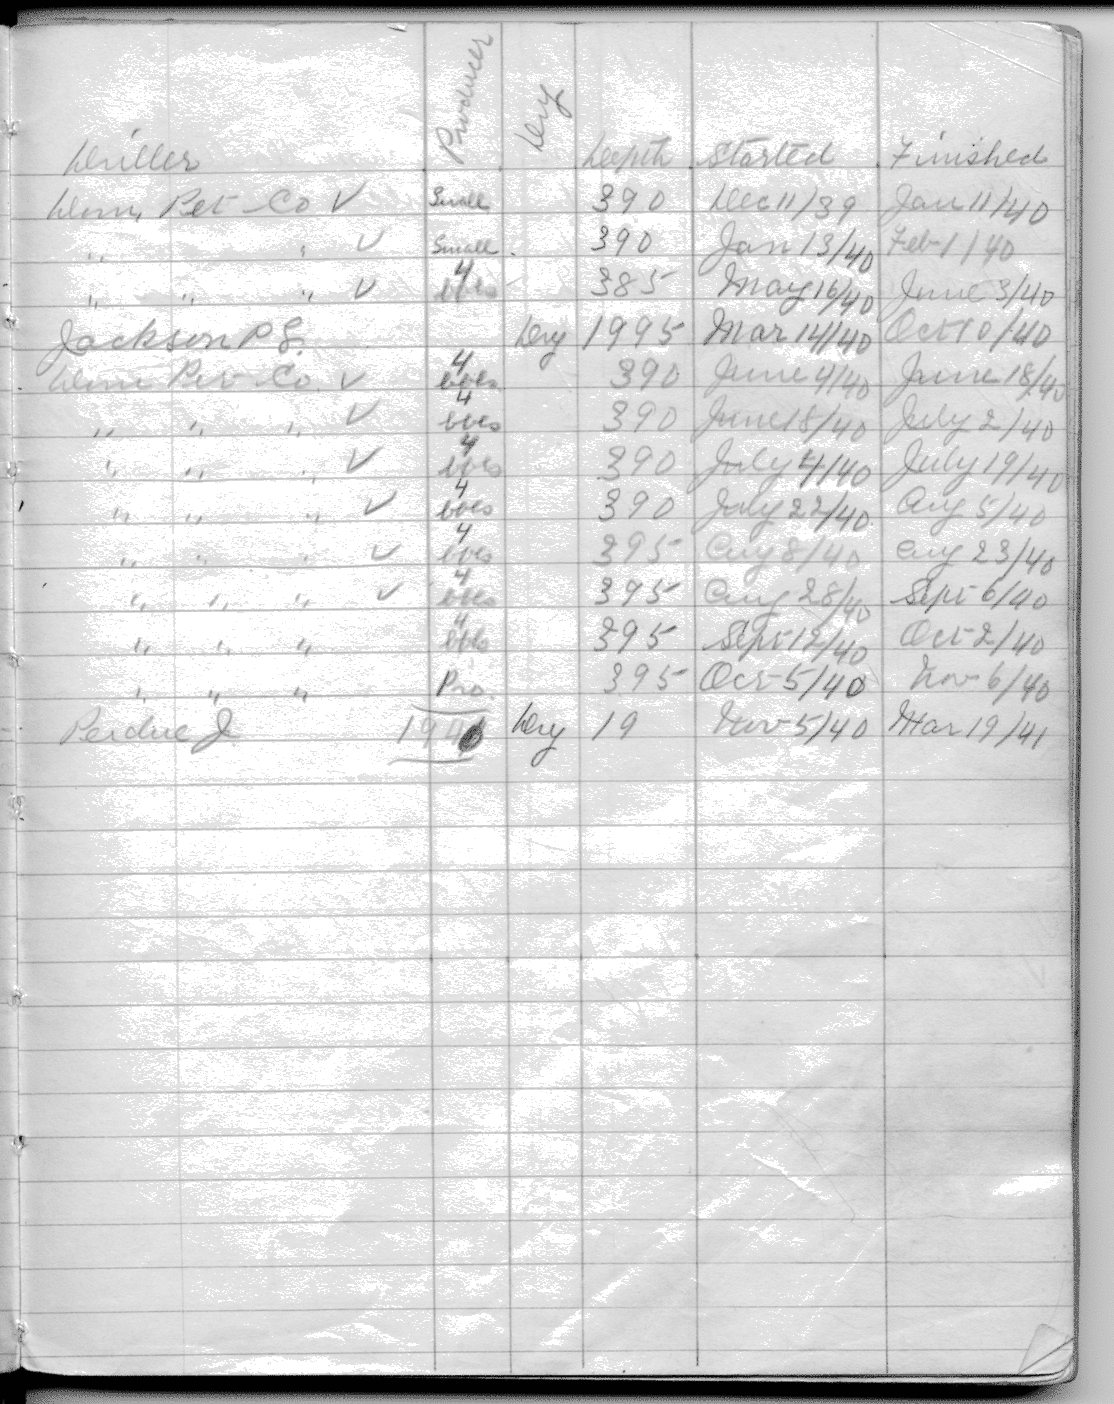 Driller Producer Dry Depth Started Finished
Dom. Pet Co ✓ Small 390 Dec 11/39 Jan 11/40
" " ✓ Small 390 Jan 13/40 Feb 1/40
" " " ✓ 4 bbls 385 May 16/40 June 3/40
Jackson P.L. Dry 1995 Mar 14/40 Oct 10/40
Dom Pet Co. ✓ 4 bbls 390 June 4/40 June 18/40
" " " ✓ 4 bbls 390 June 18/40 July 2/40
" " " ✓ 4 bbls 390 July 4/40 July 19/40
" " " ✓ 4 bbls 390 July 22/40 Aug 5/40
" " " ✓ 4 bbls 395 Aug 8/40 Aug 23/40
" " " ✓ 4 bbls 395 Aug 28/40 Sept 6/40
" " " 4 bbls 395 Sept 12/40 Oct 2/40
" " " Pro. 395 Oct 5/40 Nov 6/40
Perdue J. 1940 Dry 19 Nov 5/40 Mar 19/41